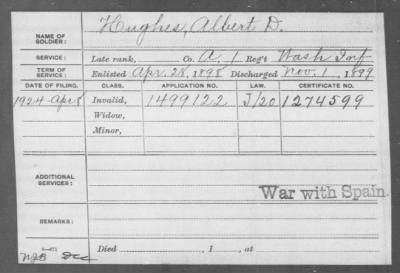 Hughes, Albert D.
NAME OF SOLDIER:
SERVICE: Late rank, Co. A, 1 Reg't Wash Inf
TERM OF SERVICE: Enlisted Apr. 28, 1898 Discharged Nov. 1, 1899
DATE OF FILING. CLASS. APPLICATION NO. LAW. CERTIFICATE NO.
1924-Apr 8 Invalid, 1499122 J/20 1274599
Widow,
Minor,
ADDITIONAL SERVICES:
War with Spain.
REMARKS:
Died , 1 , at